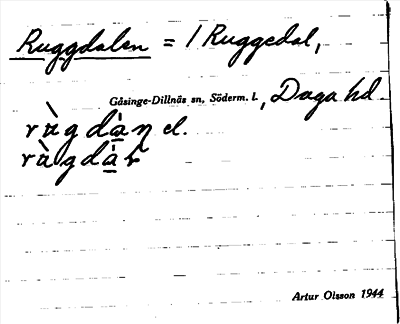 Ruggdalen = 1 Ruggedal,
Gåsinge-Dillnäs sn, Söderm. l., Daga hd.
rùgdàn el.
rùgdàr
Artur Olsson 1944